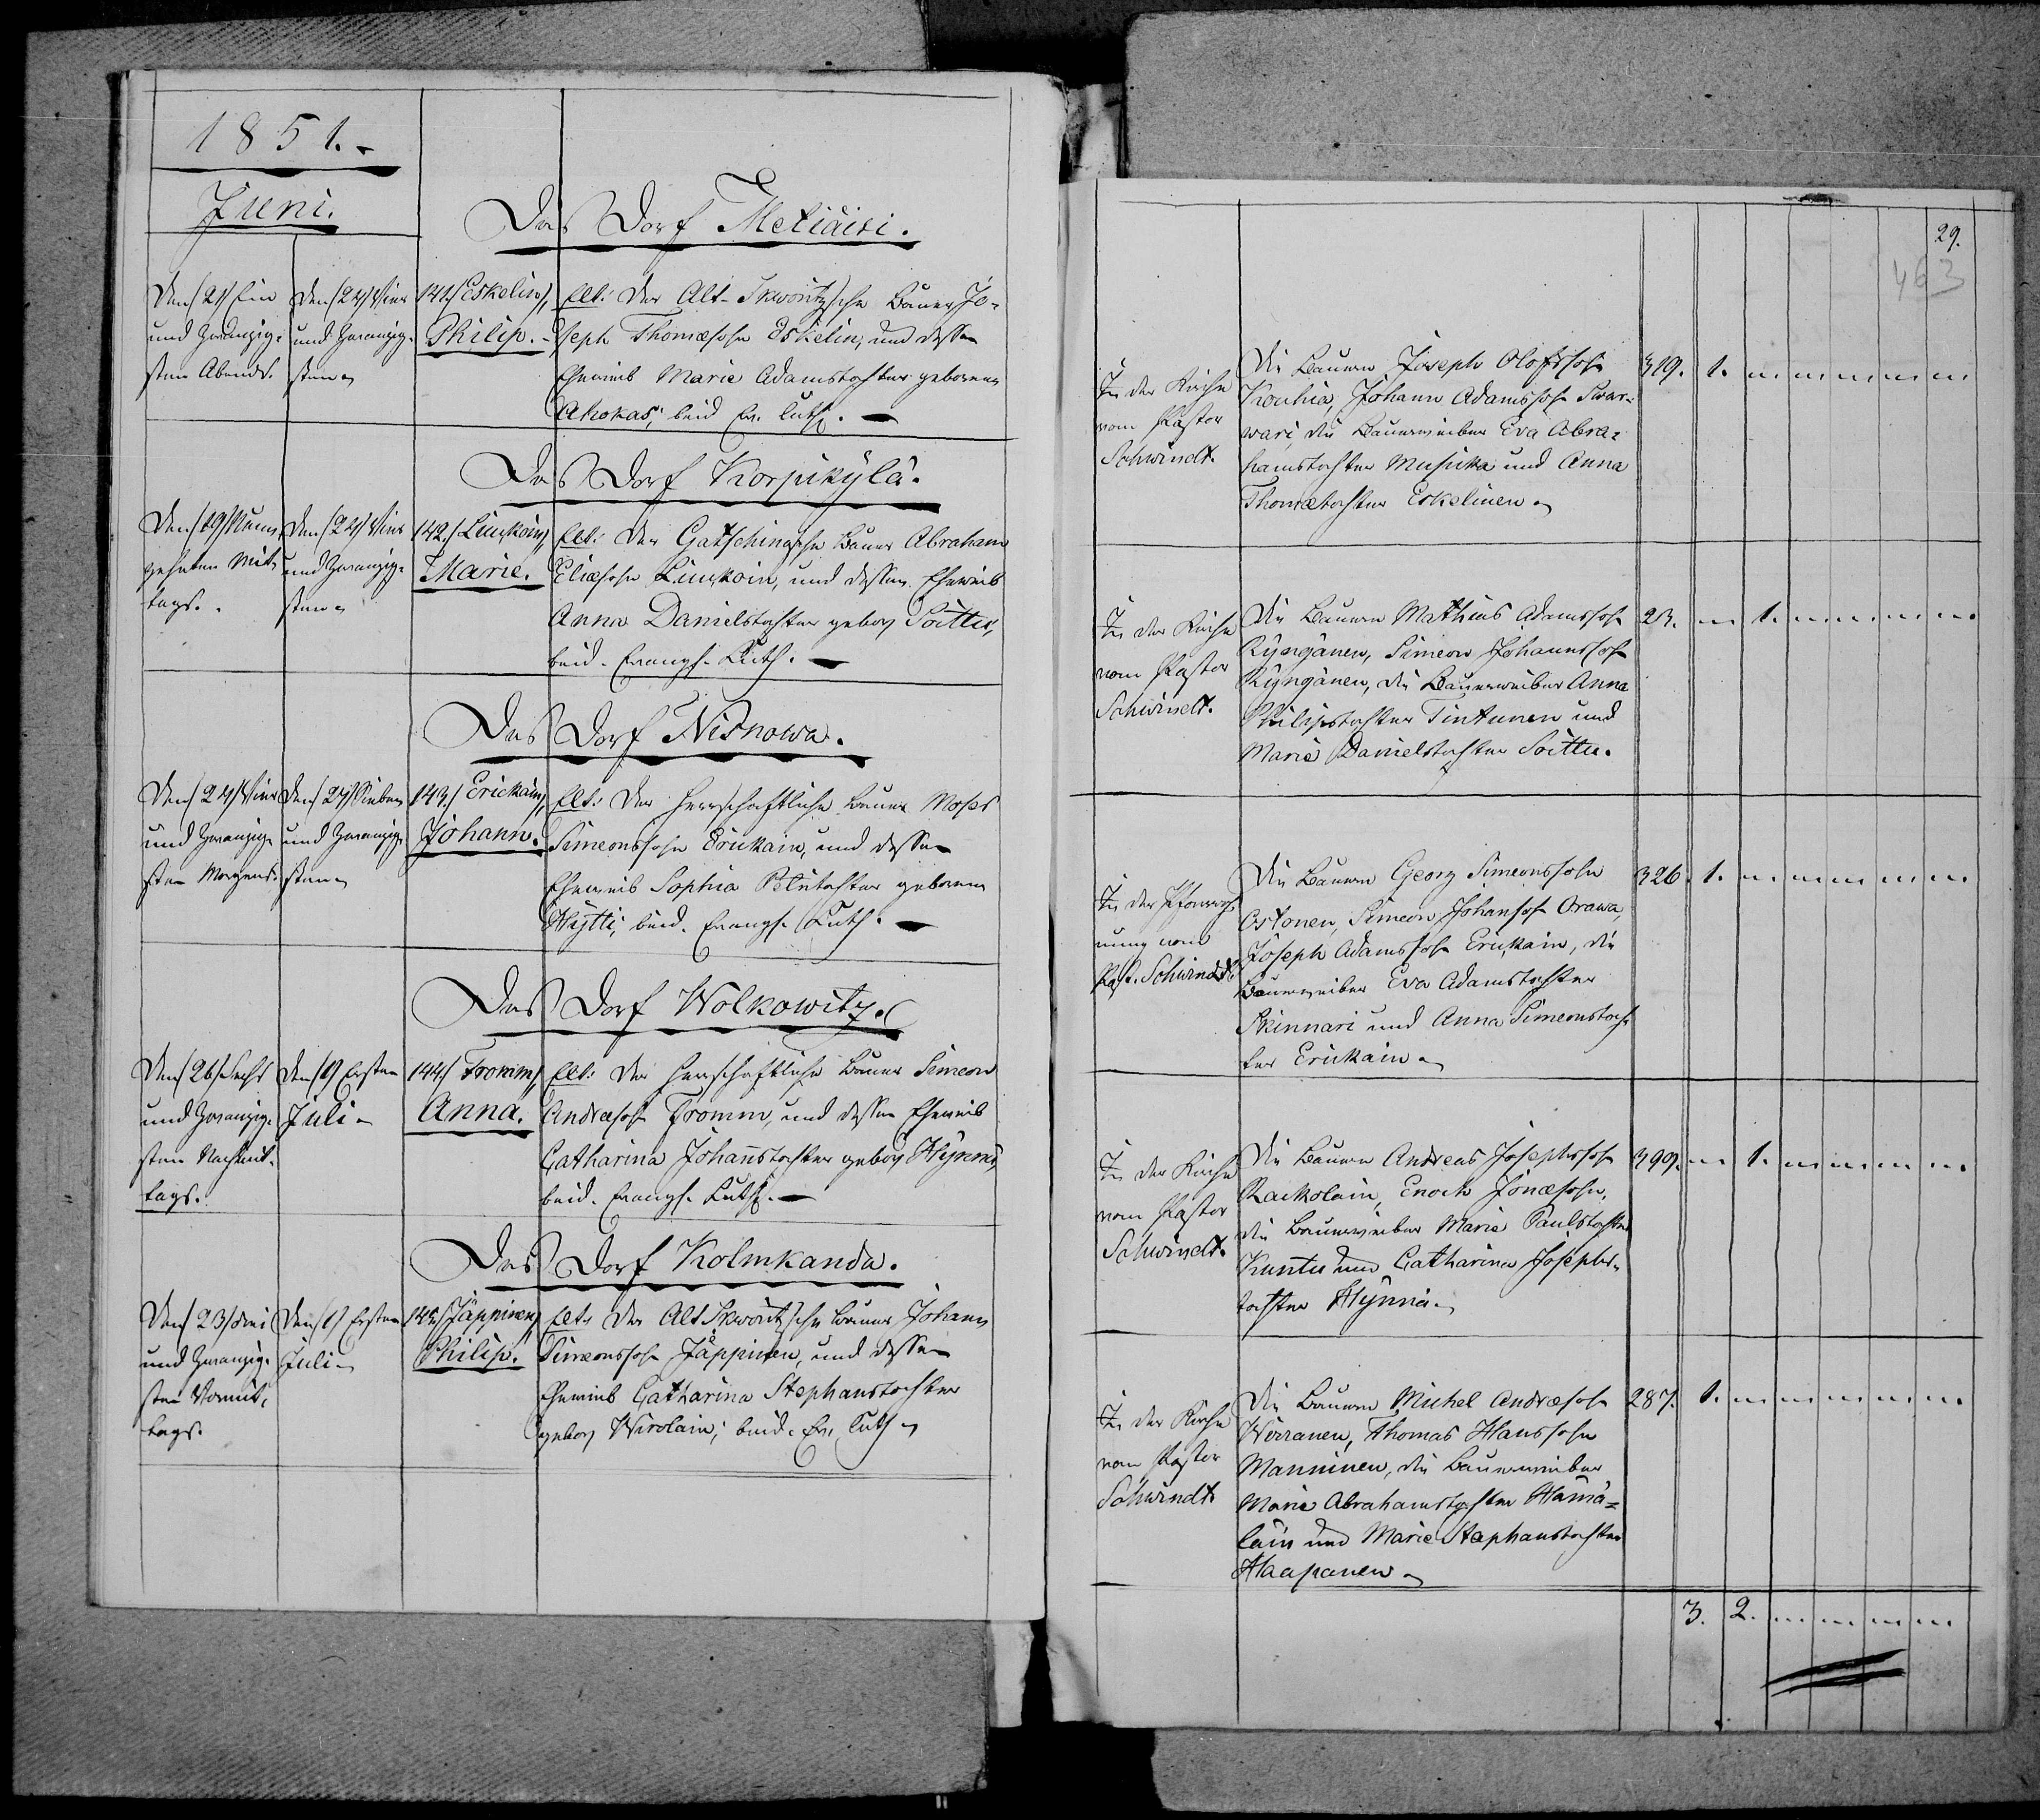 1851.
Juni.
Das Dorf Metiäisi.
Den 21/ Ein
und Zwanzig-
sten Abends.
Den 24/ Vier
und Zwanzig-
sten
141/ Eskelin,
Philip.
Elt: Der Alt-Skworitzsche Bauer Jo-
seph Thomæsohn Eskelin, und dessen
Eheweib Marie Adamstochter geborene
Ahokas; beid. Ev. Luth.
Das Dorf Korpikylä.
Den 19/ Neun-
zehnten Mit-
tags.
Den 24/ Vier
und Zwanzig-
sten
142./ Liuskoin,
Marie.
Elt: Der Gatschinasche Bauer Abraham
Eliæsohn Liuskoin, und dessen Eheweib
Anna Danielstochter gebor. Soittu,
beid. Evangl. Luth.
Das Dorf Nisnowa.
Den 24/ Vier
und Zwanzig-
sten Morgens.
Den 27/ Sieben
und Zwanzig-
sten
143./ Erickain,
Johann.
Elt: Der herrschaftliche Bauer Moses
Simeonssohn Erickain, und dessen
Eheweib Sophia Petritochter geborene
Hÿtti; beid. Evangl. Luth.
Das Dorf Wolkowitz.
Den 26/ Sechs
und Zwanzig-
sten Nachmit-
tags.
Den 1/ Ersten
Juli
144/ Fromm,
Anna.
Elt: Der herrschaftliche Bauer Simeon
Andreæsohn Fromm, und dessen Eheweib
Catharina Johanstochter gebor.
beid. Evangl. Luth.
Das Dorf Kolmkanda.
Den 23/ Drei
und Zwanzig-
sten Vormit-
tags.
Den 1/ Ersten
Juli
145/ Jäppinen,
Philip.
Elt: Der Alt Skworitzsche Bauer Johann
Simeonssohn Jäppinen, und dessen
Eheweib Catharina Stephanstochter
gebor. Wirolain; beid. Ev. Luth
29.
463
In der Kirche
vom Pastor
Schwindt.
Die Bauern Joseph Olofssohn
Kouhia, Johann Adamssohn Swar-
wari, die Bauerweiber Eva Abra-
hamstochter Musicka und Anna
Thomætochter Eskelinen
319. 1.
In der Kirche
vom Pastor
Schwindt.
Die Bauern Mathias Adamssohn
Rÿngänen, Simeon Johannssohn
Rÿngänen, die Bauerweiber Anna
Philipstochter Tintunen und
Maria Danielstochter Soittu.
23. 1.
In der
nung vom
Past. Schwindt.
Die Bauern Georg Simeonssohn
Ostonen, Simeon Johanssohn Orawa,
Joseph Adamssohn Erickain, die
Bauerweiber Eva Adamstochter
Skinnari und Anna Simeonstoch-
ter Erickain
326. 1.
In der Kirche
vom Pastor
Schwindt.
Die Bauern Andreas Josephssohn
Rackolain, Enoch Jonæsohn,
die Bauerweiber Maria Paulstochter
Kuntu und Catharina Josephs-
tochter Hÿnnä
399. 1.
In der Kirche
vom Pastor
Schwindt.
Die Bauern Michel Andreæsohn
Wirranen, Thomas Hanssohn
Manninen, die Bauerweiber
Maria Abrahamstochter Hämä-
läin und Marie Stephanstochter
Haapanen
287. 1.
3. 2.